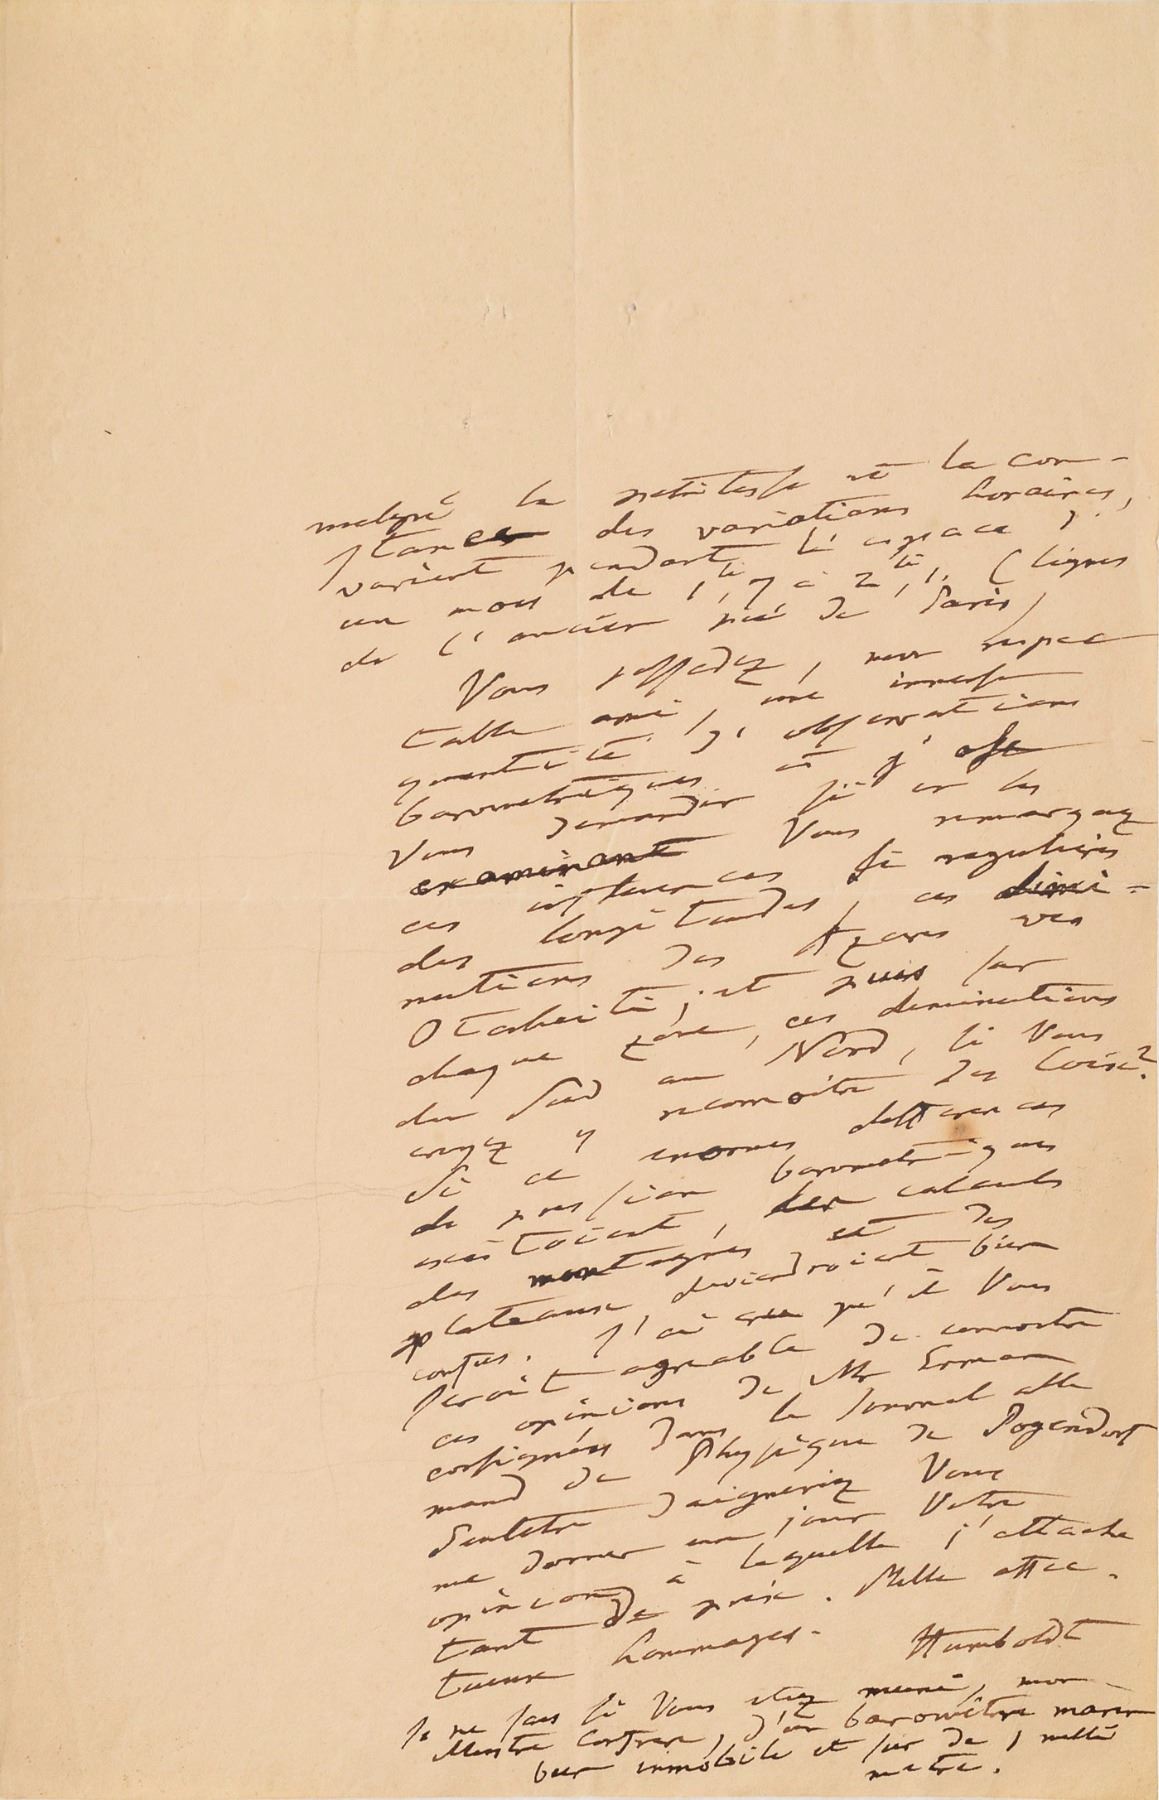 malgré la petitesse et la con-
stance des variations horaires,
varient pendant l'espace d'
un mois de 1,li7 à 2,li1. (lignes
de l'ancien pié de Paris)
Vous possedez, mon respec
table ami, une immense
quantité d'observations
barometriques et j'ose
Vous demander si en les
examinant Vous remarquez
ces influences si regulieres
des longitudes, ces dimi-
nutions des Açores vers
Otaheiti; et puis sur
chaque zone, ces diminutions
du Sud au Nord, si Vous
croyez y reconnoitre des Loix?
Si ce enormes differences
de pression barometriques
existoient, les calculs
des montagnes et des
plateaux deviendroient bien
confus. J'ai cru qu'il Vous
seroit agreable de connoitre
ces opinions de Mr Erman
consignées dans le Journal alle
mand de Physique de Pogendorf
Peutetre daigneriez Vous
me donner un jour Votre
opinion à laquelle j'attache
tant de prix. Mille affec-
tueux hommages.
Humboldt
Je ne sais si Vous etiez muni, mon
illustre Confrere, d'un baromètre marin
bien immobile et sur de 1 milli
metre.